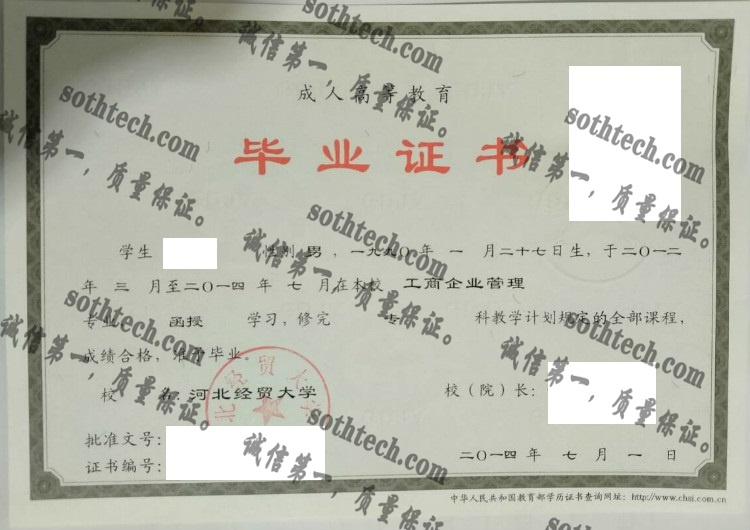 成人高等教育
毕业证书
学生 性别 男，一九九〇年 一 月二十七日生，于二〇一二
年 三 月至二〇一四年 七 月在本校 工商企业管理
专业 函授 学习，修完 专 科教学计划规定的全部课程，
成绩合格，准予毕业。
校 名：河北经贸大学
校（院）长：
批准文号：
证书编号：
二〇一四年 七 月 一 日
中华人民共和国教育部学历证书查询网址：http://www.chsi.com.cn
sothtech.com
诚信第一，质量保证。
sothtech.com
诚信第一，质量保证。
sothtech.com
诚信第一，质量保证。
sothtech.com
诚信第一，质量保证。
sothtech.com
诚信第一，质量保证。
sothtech.com
诚信第一，质量保证。
sothtech.com
诚信第一，质量保证。